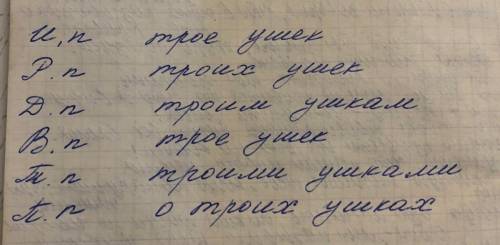 И.п трое ушек
Р.п троих ушек
Д.п троим ушкам
В.п трое ушек
Т.п троими ушками
П.п о троих ушках